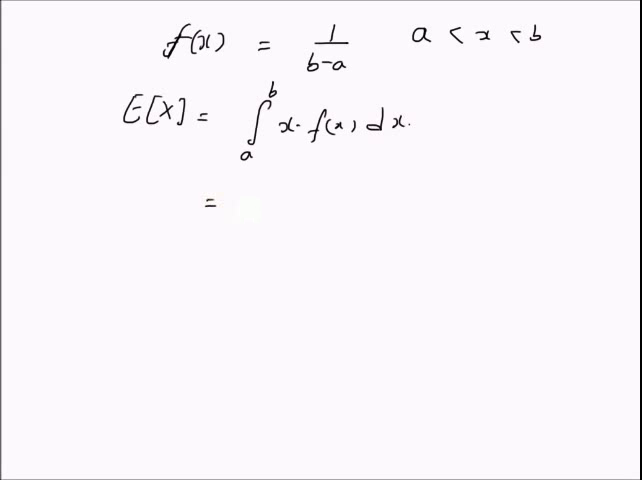 f(x) = 1/(b-a) a < x < b
E[X] = ∫_a^b x · f(x) dx.
=